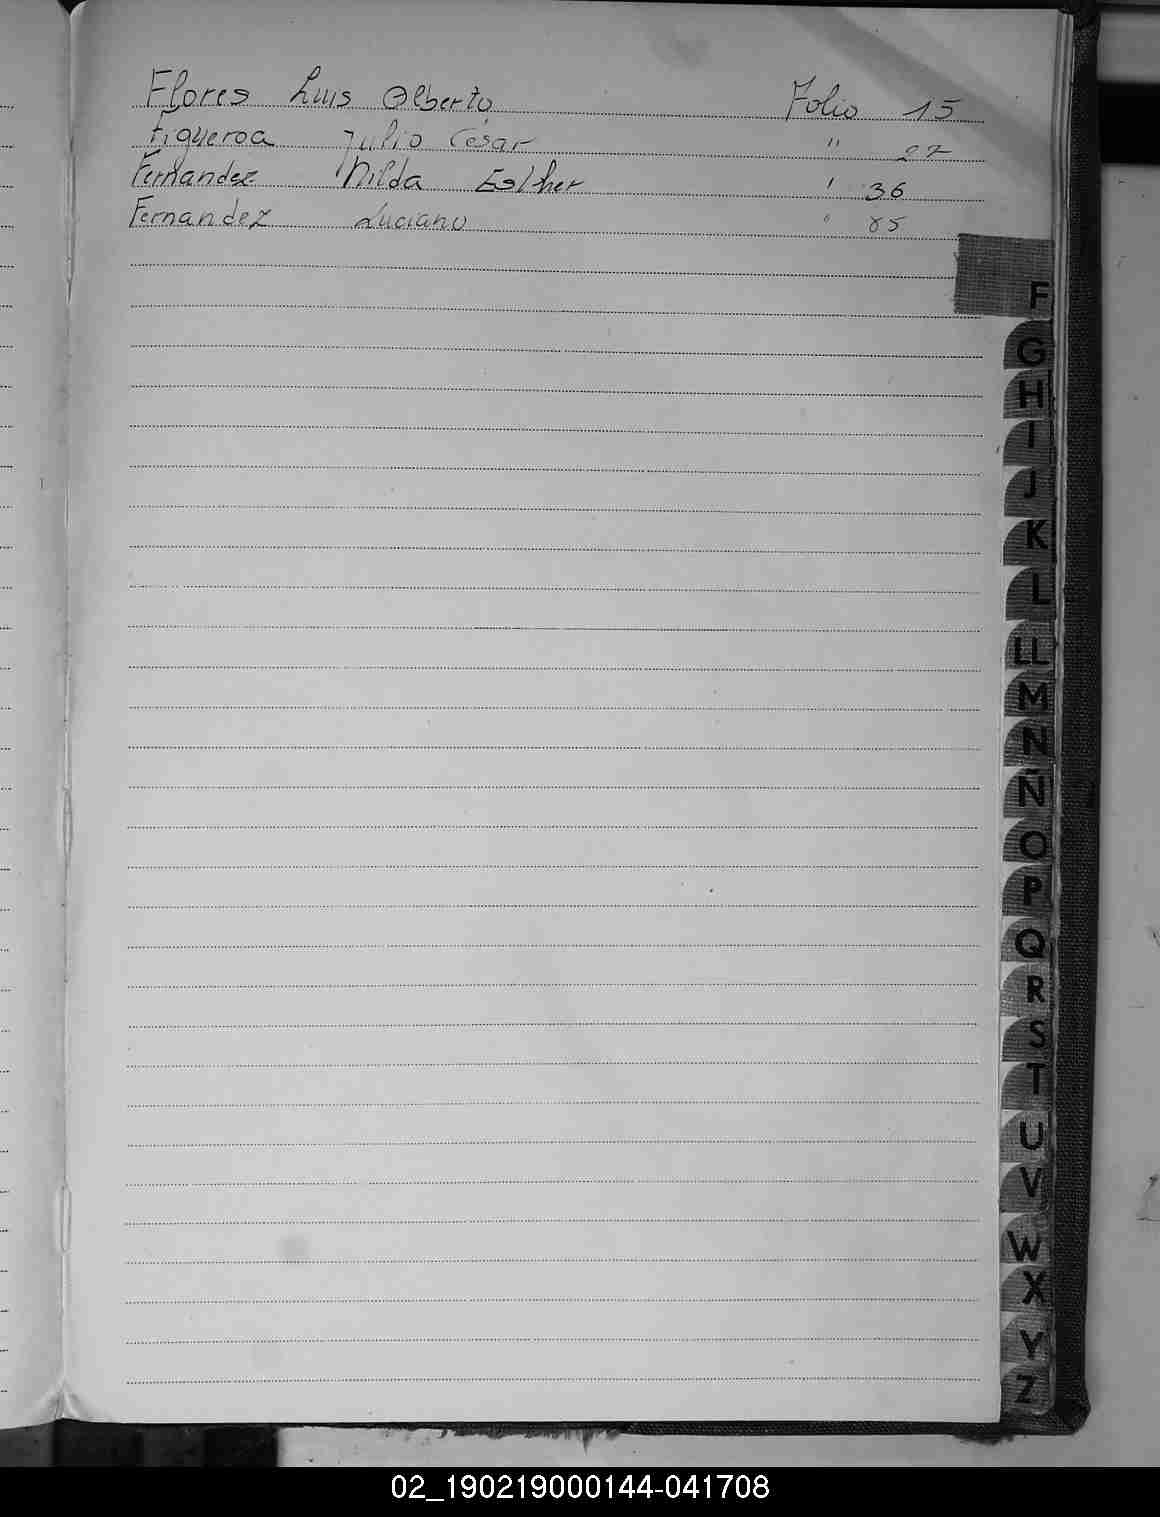 Flores Luis Alberto Folio 15
Figueroa Julio Cesar " 27
Fernandez Nilda Esther ' 36
Fernandez Luciano " 85
F
G
H
I
J
K
L
LL
M
N
Ñ
O
P
Q
R
S
T
U
V
W
X
Y
Z
02_190219000144-041708